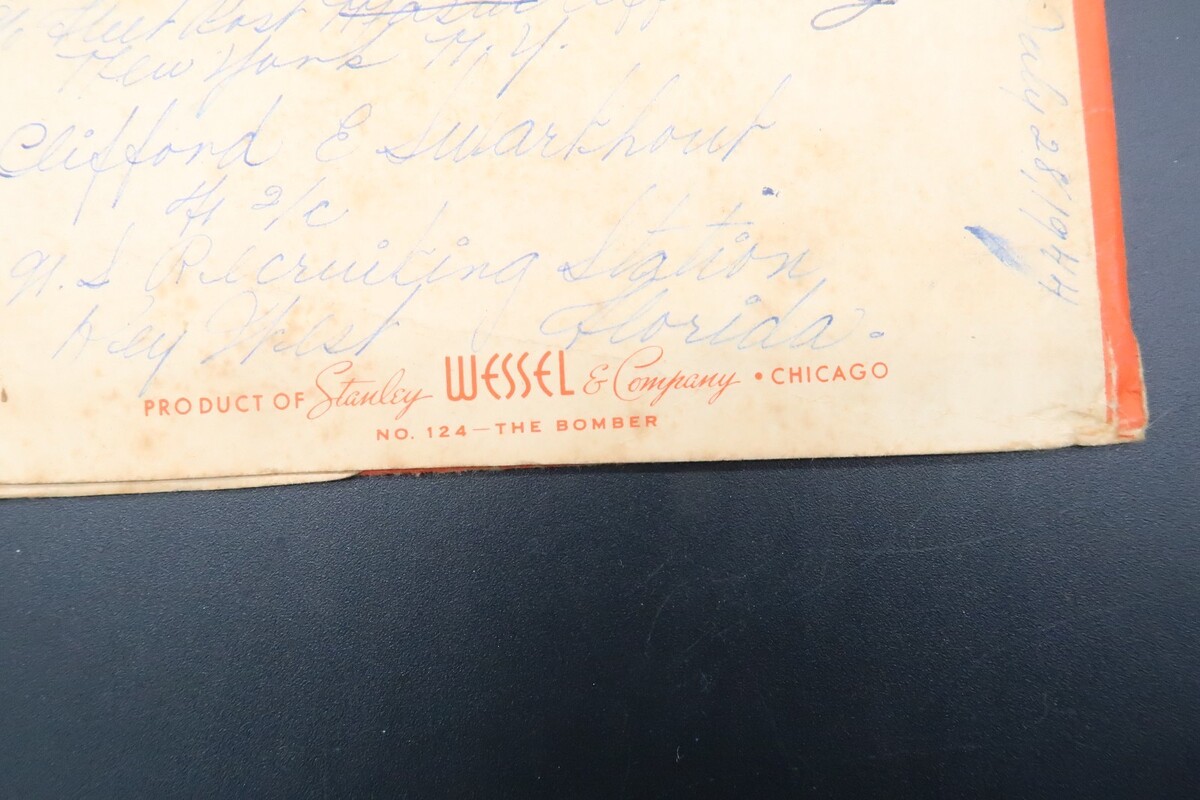 Fleet Post
New York N.Y.
Clifford E Swarthout
2/c
Recruiting Station
Key West Florida.
PRODUCT OF Stanley WESSEL & Company • CHICAGO
NO. 124—THE BOMBER
July 28, 1944